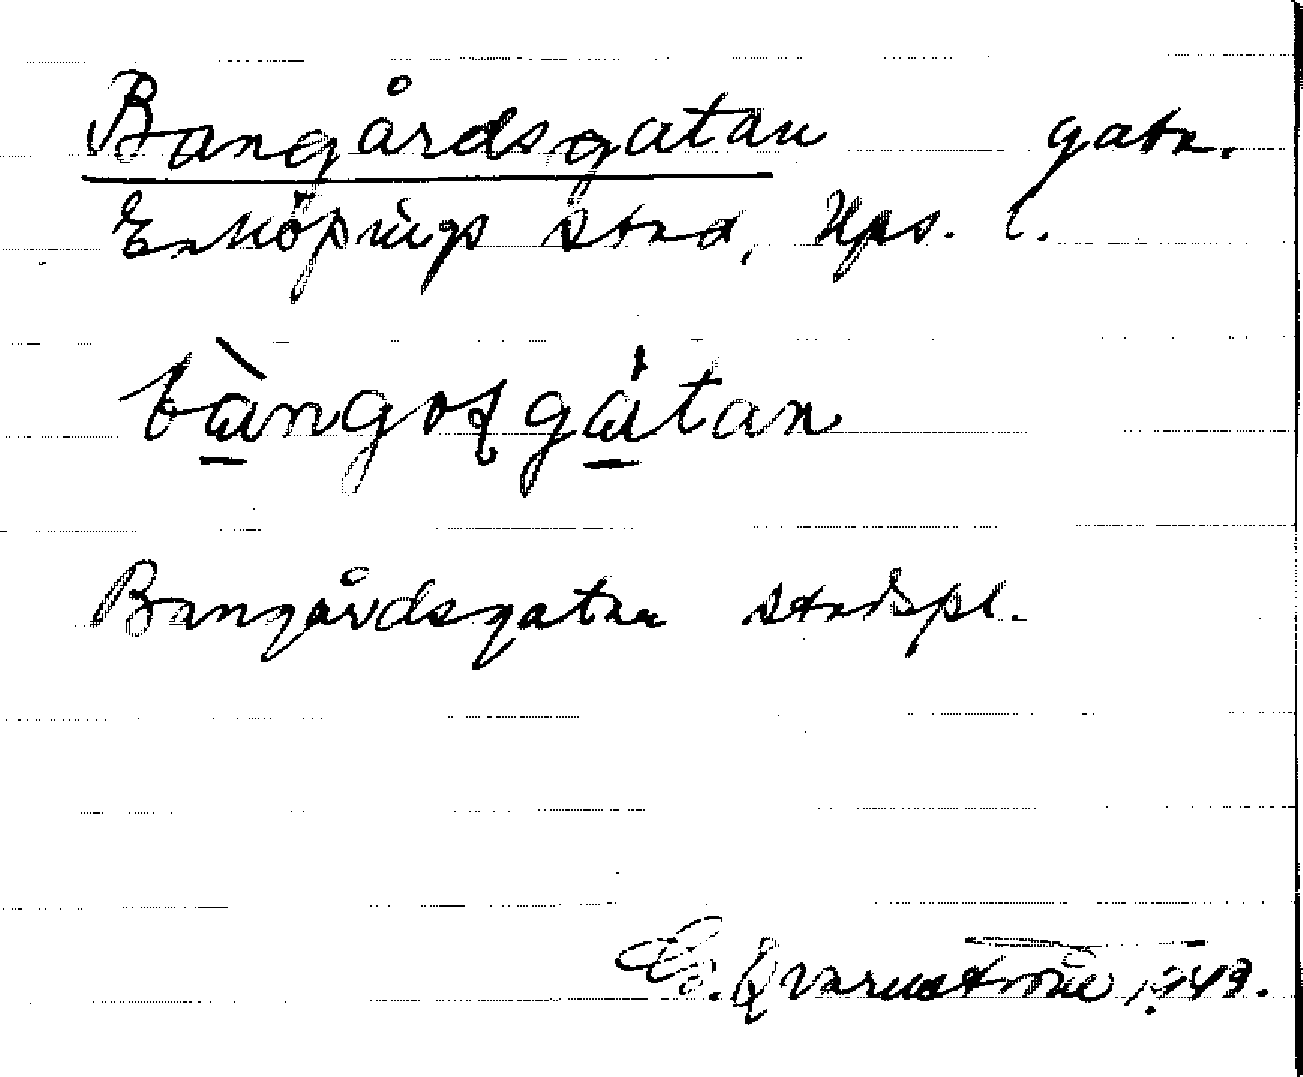 Bangårdsgatan gatn.
Enköpings stad, Ups. l.
bàngoʂgátan
Bangårdsgatan stadspl.
Qvarnström 1943.